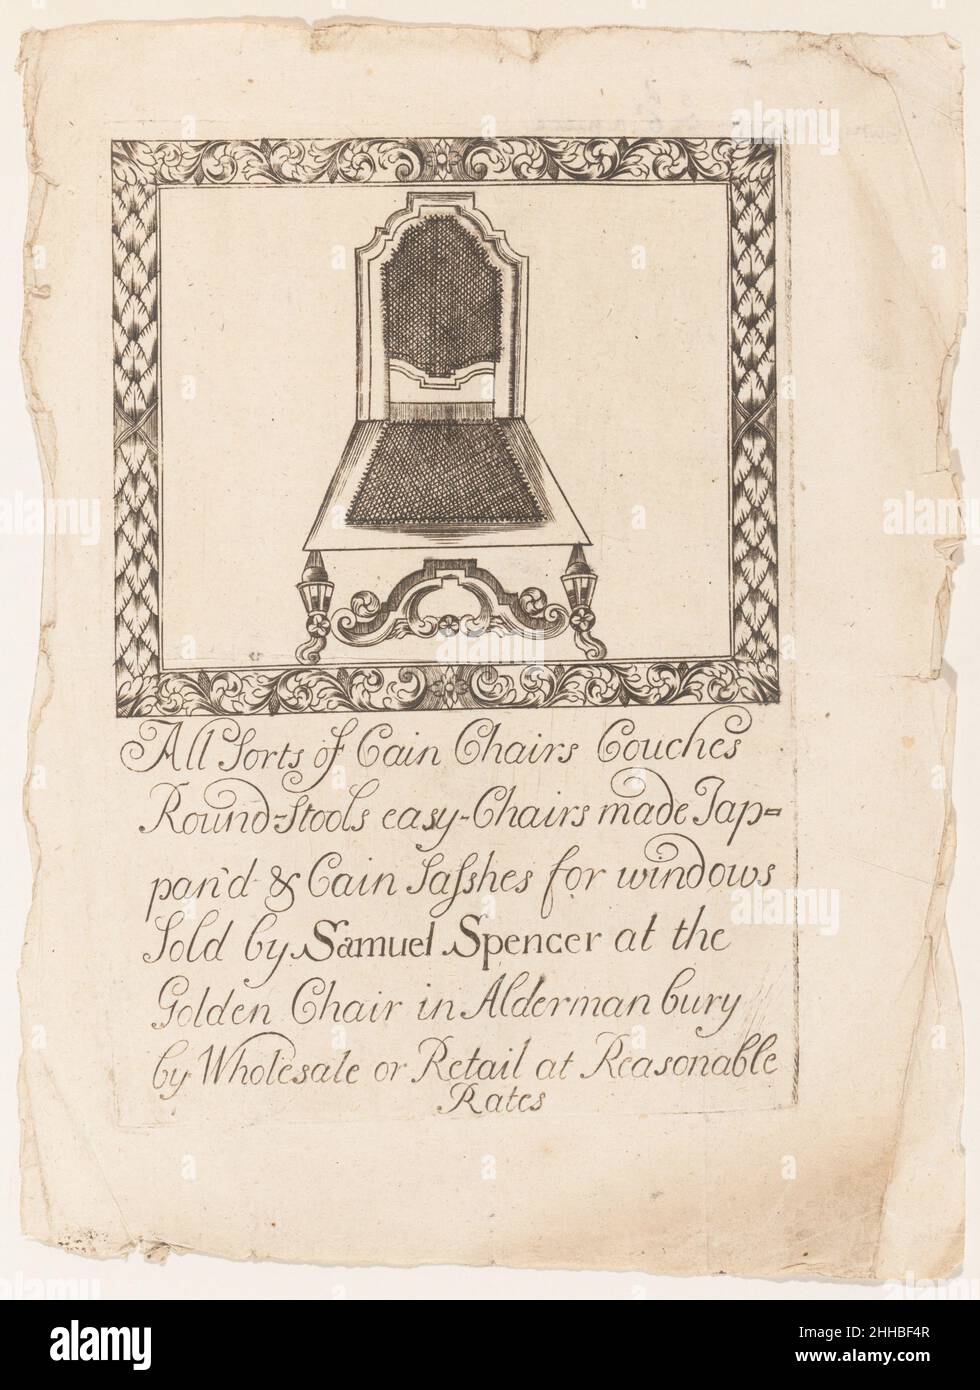 All Sorts of Cain Chairs Couches
Round-Stools easy-Chairs made Jap=
pan'd & Cain Saſshes for windows
Sold by Samuel Spencer at the
Golden Chair in Alderman bury
by Wholesale or Retail at Reasonable
Rates
alamy
Image ID: 2HHBF4R
www.alamy.com